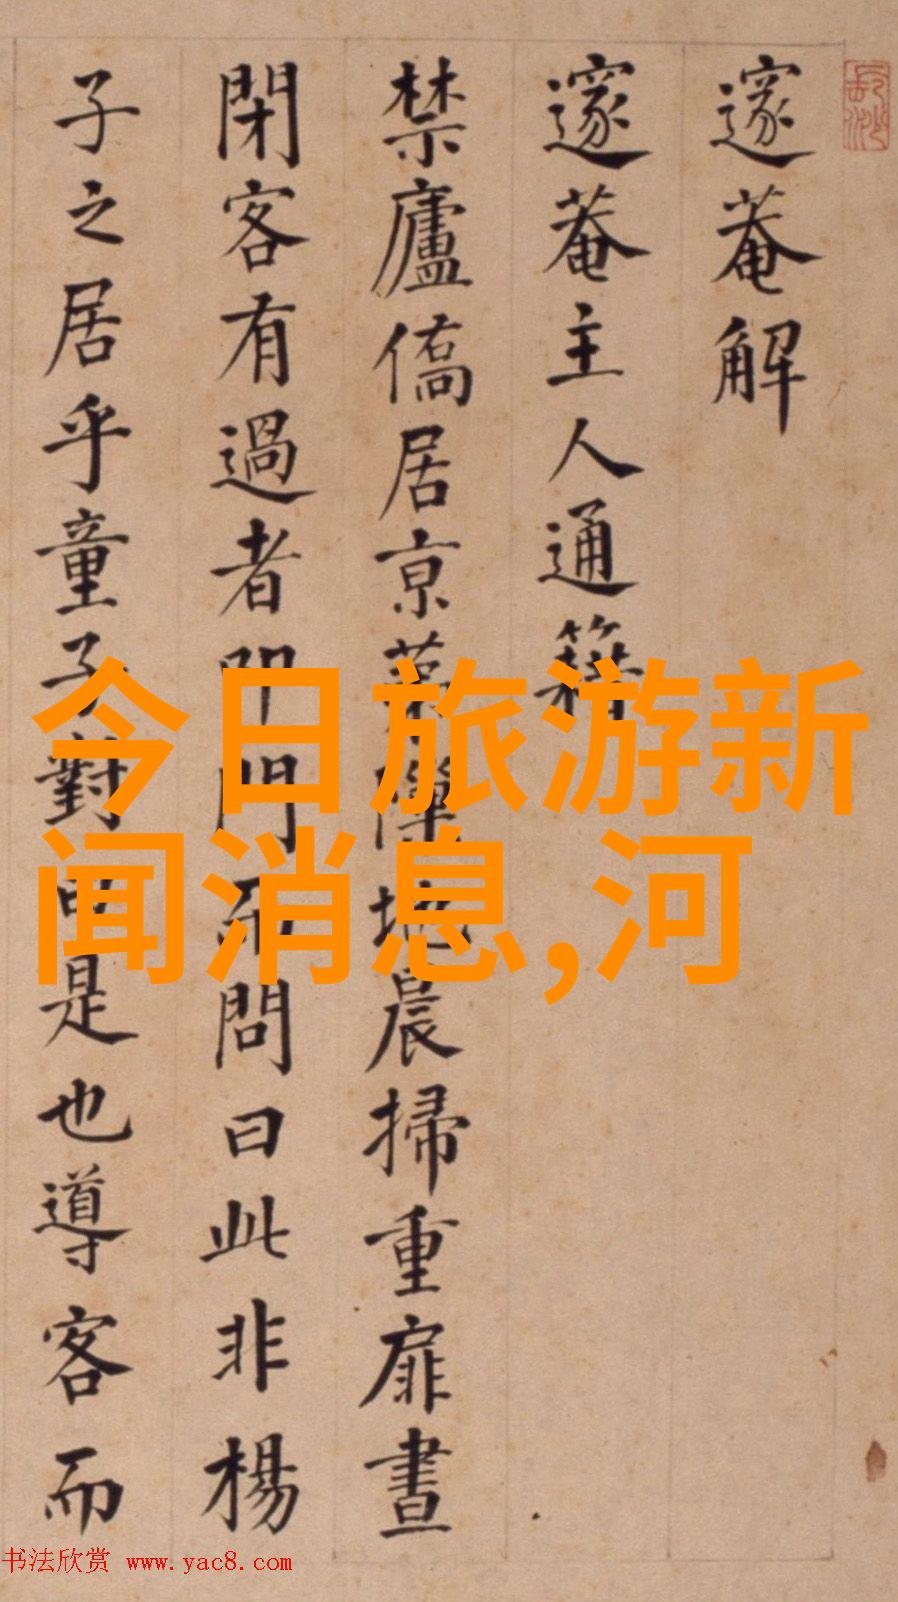 邃菴解
邃菴主人通籍
禁廬僑居京
晨掃重扉晝
閉客有過者叩門而問曰此非楊
子之居乎童子對曰是也導客而
今日旅游新
闻消息,河
书法欣赏 www.yac8.com